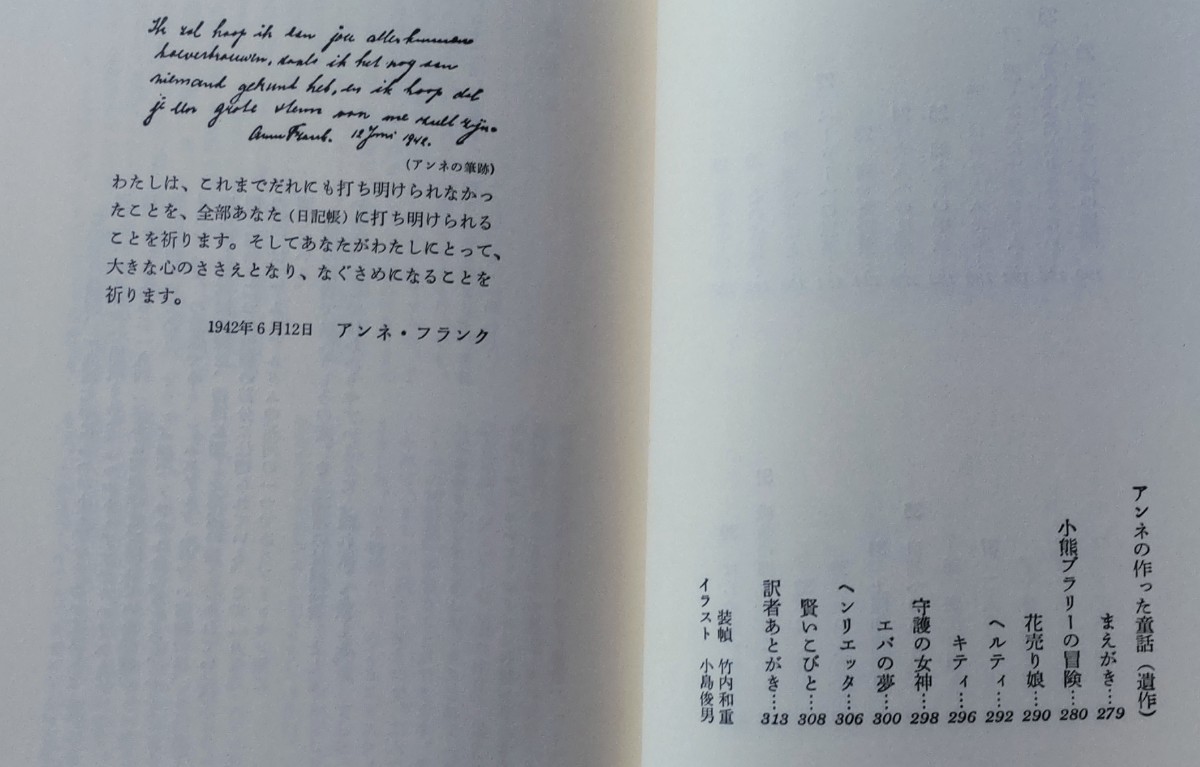 アンネの作った童話(遺作)
まえがき…279
小熊ブラリーの冒険…280
花売り娘…290
ヘルティ…292
キティ…296
守護の女神…298
エバの夢…300
ヘンリエッタ…306
賢いこびと…308
訳者あとがき…313
装幀 竹内和重
イラスト 小島俊男
Ik zal hoop ik aan jou alles kunnen
toevertrouwen, zoals ik het nog aan
niemand gekund heb, en ik hoop dat
je een grote steun van me zult zijn.
Anne Frank. 12 Juni 1942.
(アンネの筆跡)
わたしは、これまでだれにも打ち明けられなかっ
たことを、全部あなた(日記帳)に打ち明けられる
ことを祈ります。そしてあなたがわたしにとって、
大きな心のささえとなり、なぐさめになることを
祈ります。
1942年6月12日 アンネ・フランク